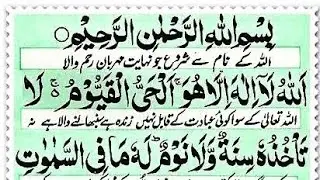 بِسْمِ اللهِ الرَّحْمٰنِ الرَّحِيْمِ
اللہ کے نام سے شروع جو نہایت مہربان رحم والا
اَللهُ لَاۤ اِلٰهَ اِلَّا هُوَۚ اَلْحَیُّ الْقَیُّوْمُ ۚ لَا
اللہ تعالیٰ کے سوا کوئی عبادت کے قابل نہیں زندہ ہے سنبھالنے والا ہے نہ
تَاْخُذُهٗ سِنَةٌ وَّلَا نَوْمٌ ؕ لَهٗ مَا فِی السَّمٰوٰتِ